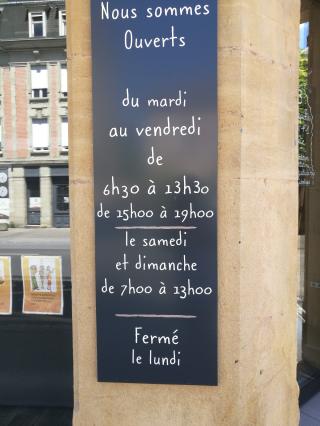 Nous sommes
Ouverts
du mardi
au vendredi
de
6h30 à 13h30
de 15h00 à 19h00
le samedi
et dimanche
de 7h00 à 13h00
Fermé
le lundi